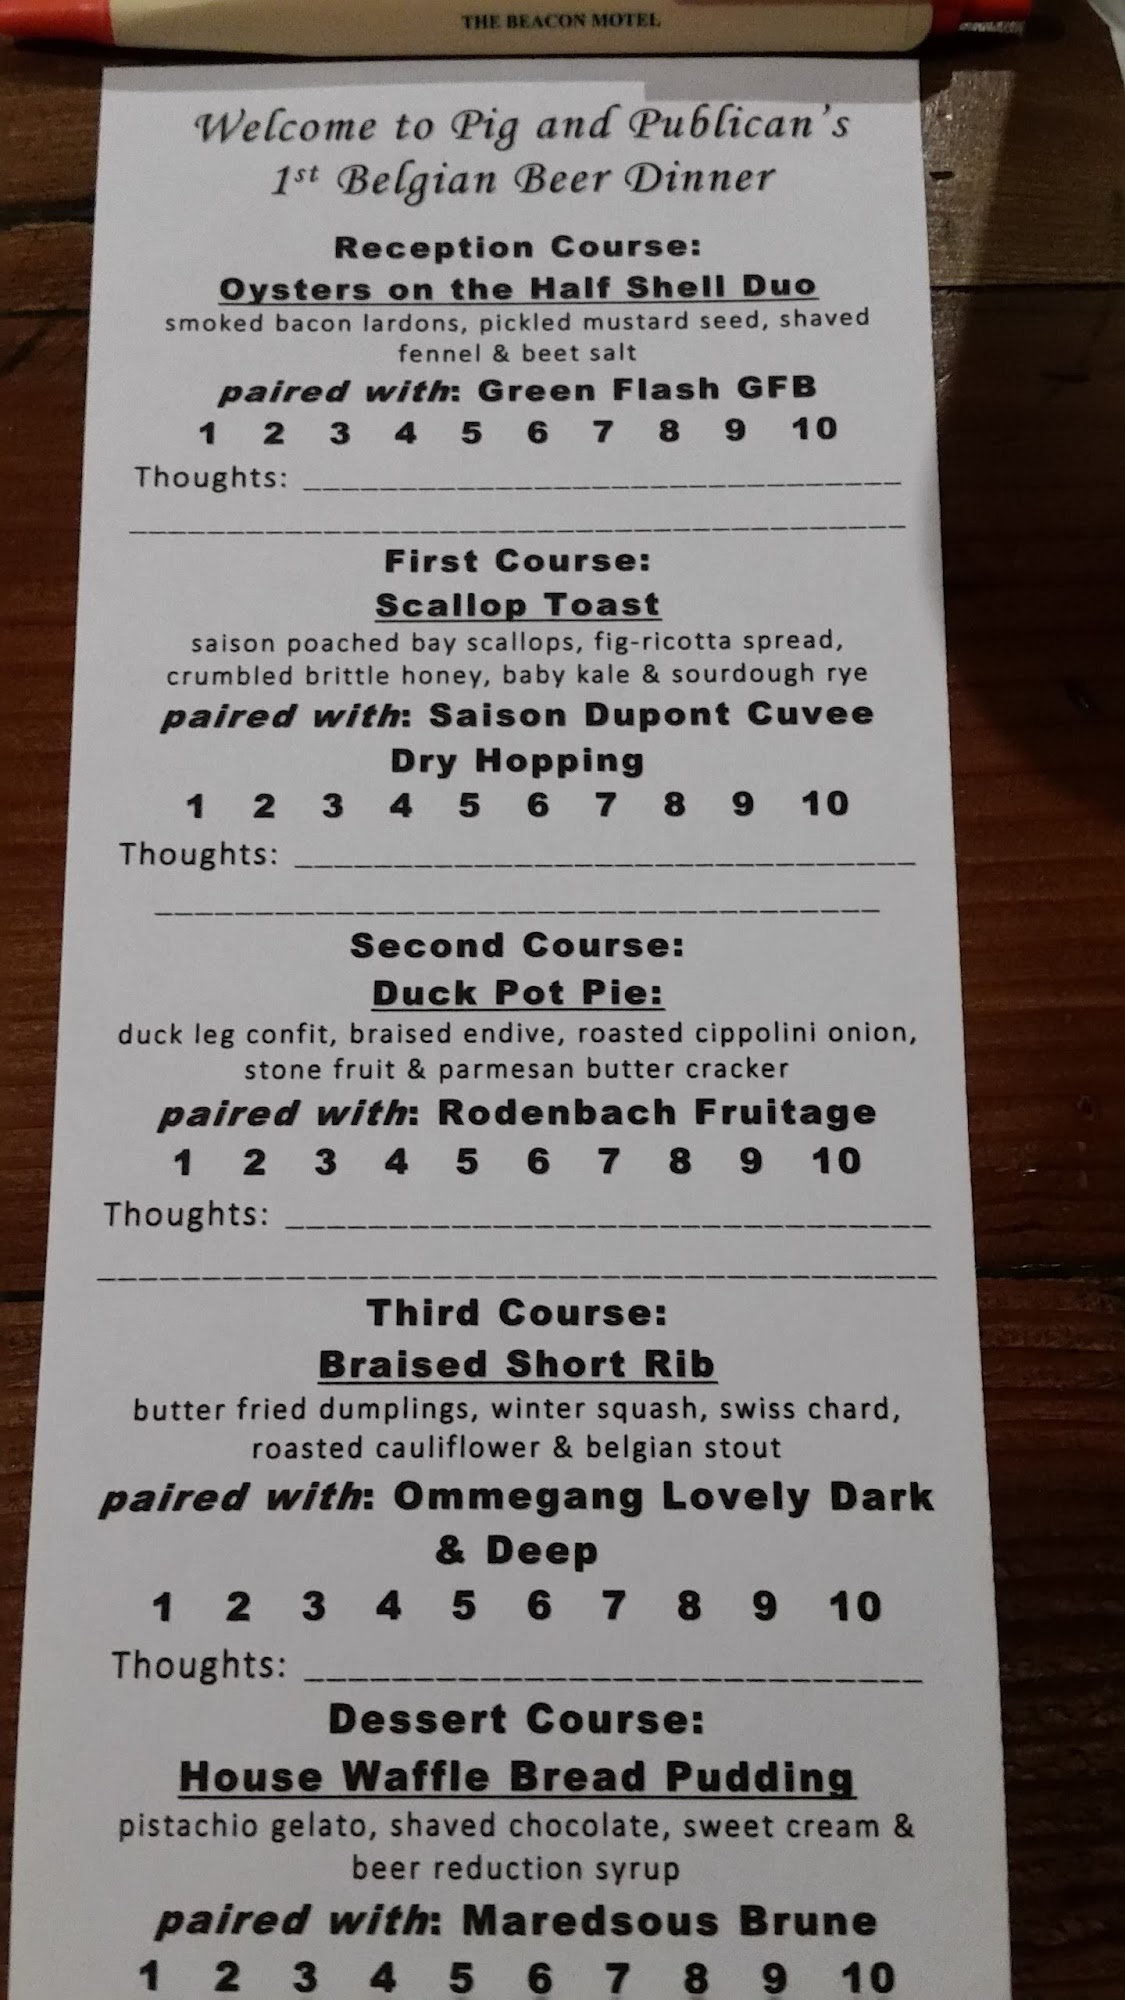 THE BEACON MOTEL
Welcome to Pig and Publican's
1st Belgian Beer Dinner
Reception Course:
Oysters on the Half Shell Duo
smoked bacon lardons, pickled mustard seed, shaved
fennel & beet salt
paired with: Green Flash GFB
1 2 3 4 5 6 7 8 9 10
Thoughts: _______________________________
________________________________________
First Course:
Scallop Toast
saison poached bay scallops, fig-ricotta spread,
crumbled brittle honey, baby kale & sourdough rye
paired with: Saison Dupont Cuvee
Dry Hopping
1 2 3 4 5 6 7 8 9 10
Thoughts: _______________________________
____________________________________
Second Course:
Duck Pot Pie:
duck leg confit, braised endive, roasted cippolini onion,
stone fruit & parmesan butter cracker
paired with: Rodenbach Fruitage
1 2 3 4 5 6 7 8 9 10
Thoughts: _______________________________
________________________________________
Third Course:
Braised Short Rib
butter fried dumplings, winter squash, swiss chard,
roasted cauliflower & belgian stout
paired with: Ommegang Lovely Dark
& Deep
1 2 3 4 5 6 7 8 9 10
Thoughts: _____________________________
Dessert Course:
House Waffle Bread Pudding
pistachio gelato, shaved chocolate, sweet cream &
beer reduction syrup
paired with: Maredsous Brune
1 2 3 4 5 6 7 8 9 10